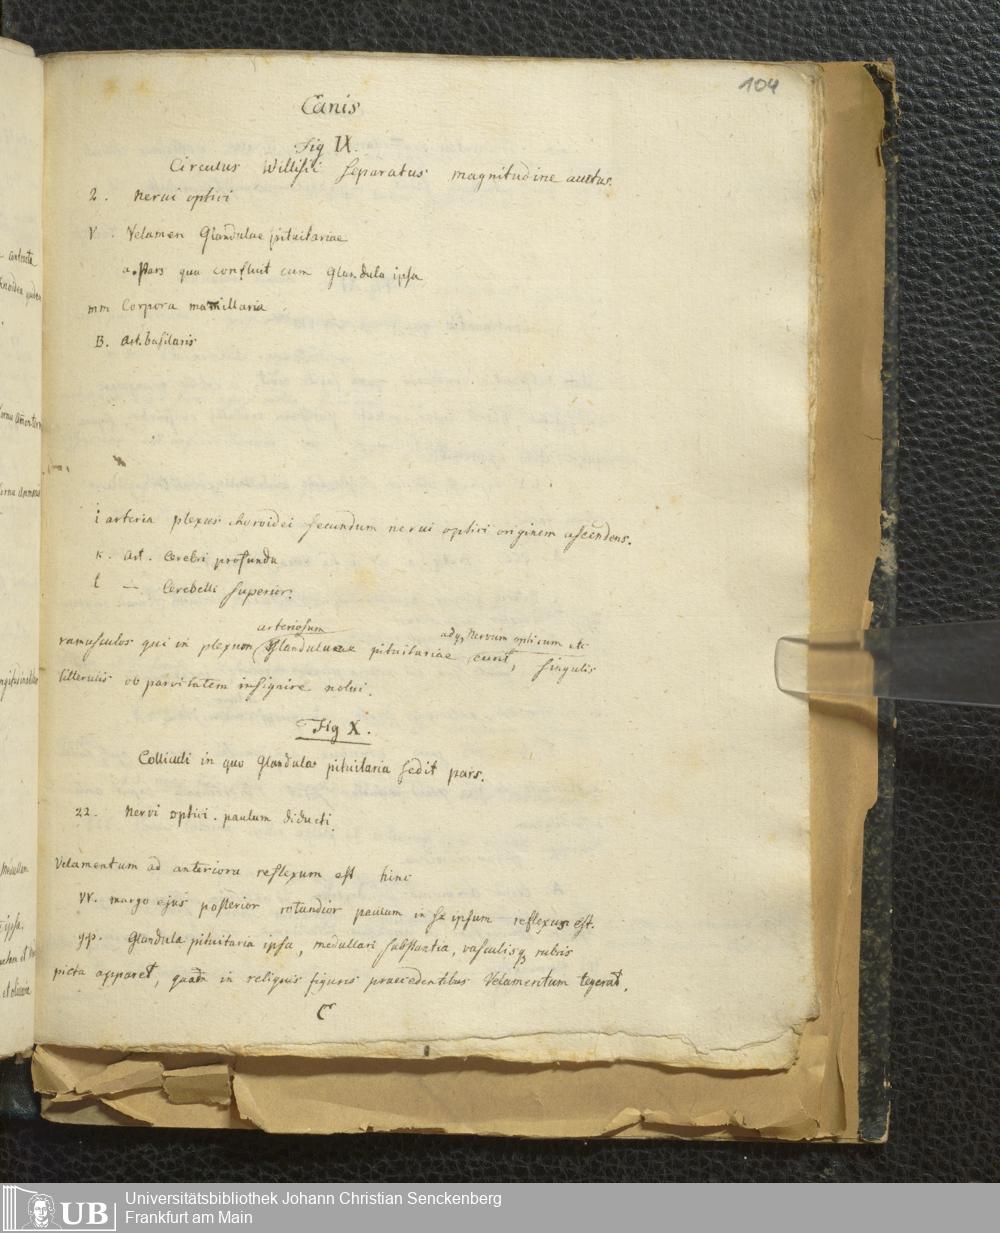 104
Canis
Fig IX.
Circulus Willisii separatus magnitudine auctus.
2. Nervi optici
V. Velamen Glandulae pituitariae
a. Pars qua confluit cum Glandula ipsa
mm Corpora mammillaria
B. Art. basilaris
i arteria plexus choroidei secundum nervi optici originem ascendens.
K. Art. Cerebri profunda
l — Cerebelli superior.
arteriosum adq nervum opticum etc
ramusculos qui in plexum Glandulae pituitariae eunt, singulis
litterulis ob parvitatem insignire nolui.
Fig X.
Colliculi in quo Glandulae pituitaria sedit pars.
22. Nervi optici. paulum diducti
Velamentum ad anteriora reflexum est hinc
VV. margo ejus posterior rotundior paulum in se ipsum reflexus est.
gp. Glandula pituitaria ipsa, medullari substantia, vasculisq rubris
picta apparet, quam in reliquis figuris praecedentibus Velamentum tegerat.
antica
Cornu Ammonis
Medullam
ipsa,
UB
Universitätsbibliothek Johann Christian Senckenberg
Frankfurt am Main